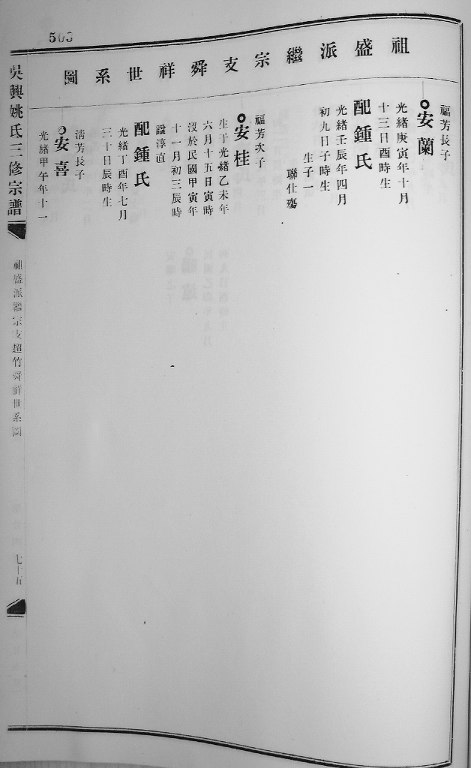 503
祖盛派繼宗支舜祥世系圖
福芳長子
安蘭
光緒庚寅年十月
十三日酉時生
配鍾氏
光緒壬辰年四月
初九日子時生
生子一
聯仕殤
福芳次子
安桂
生于光緒乙未年
六月十五日寅時
沒於民國甲寅年
十一月初三辰時
諡淳直
配鍾氏
光緒丁酉年七月
三十日辰時生
清芳長子
安喜
光緒甲午年十一
吳興姚氏三修宗譜
盛派繼宗支超竹舜祥世系圖
七十五